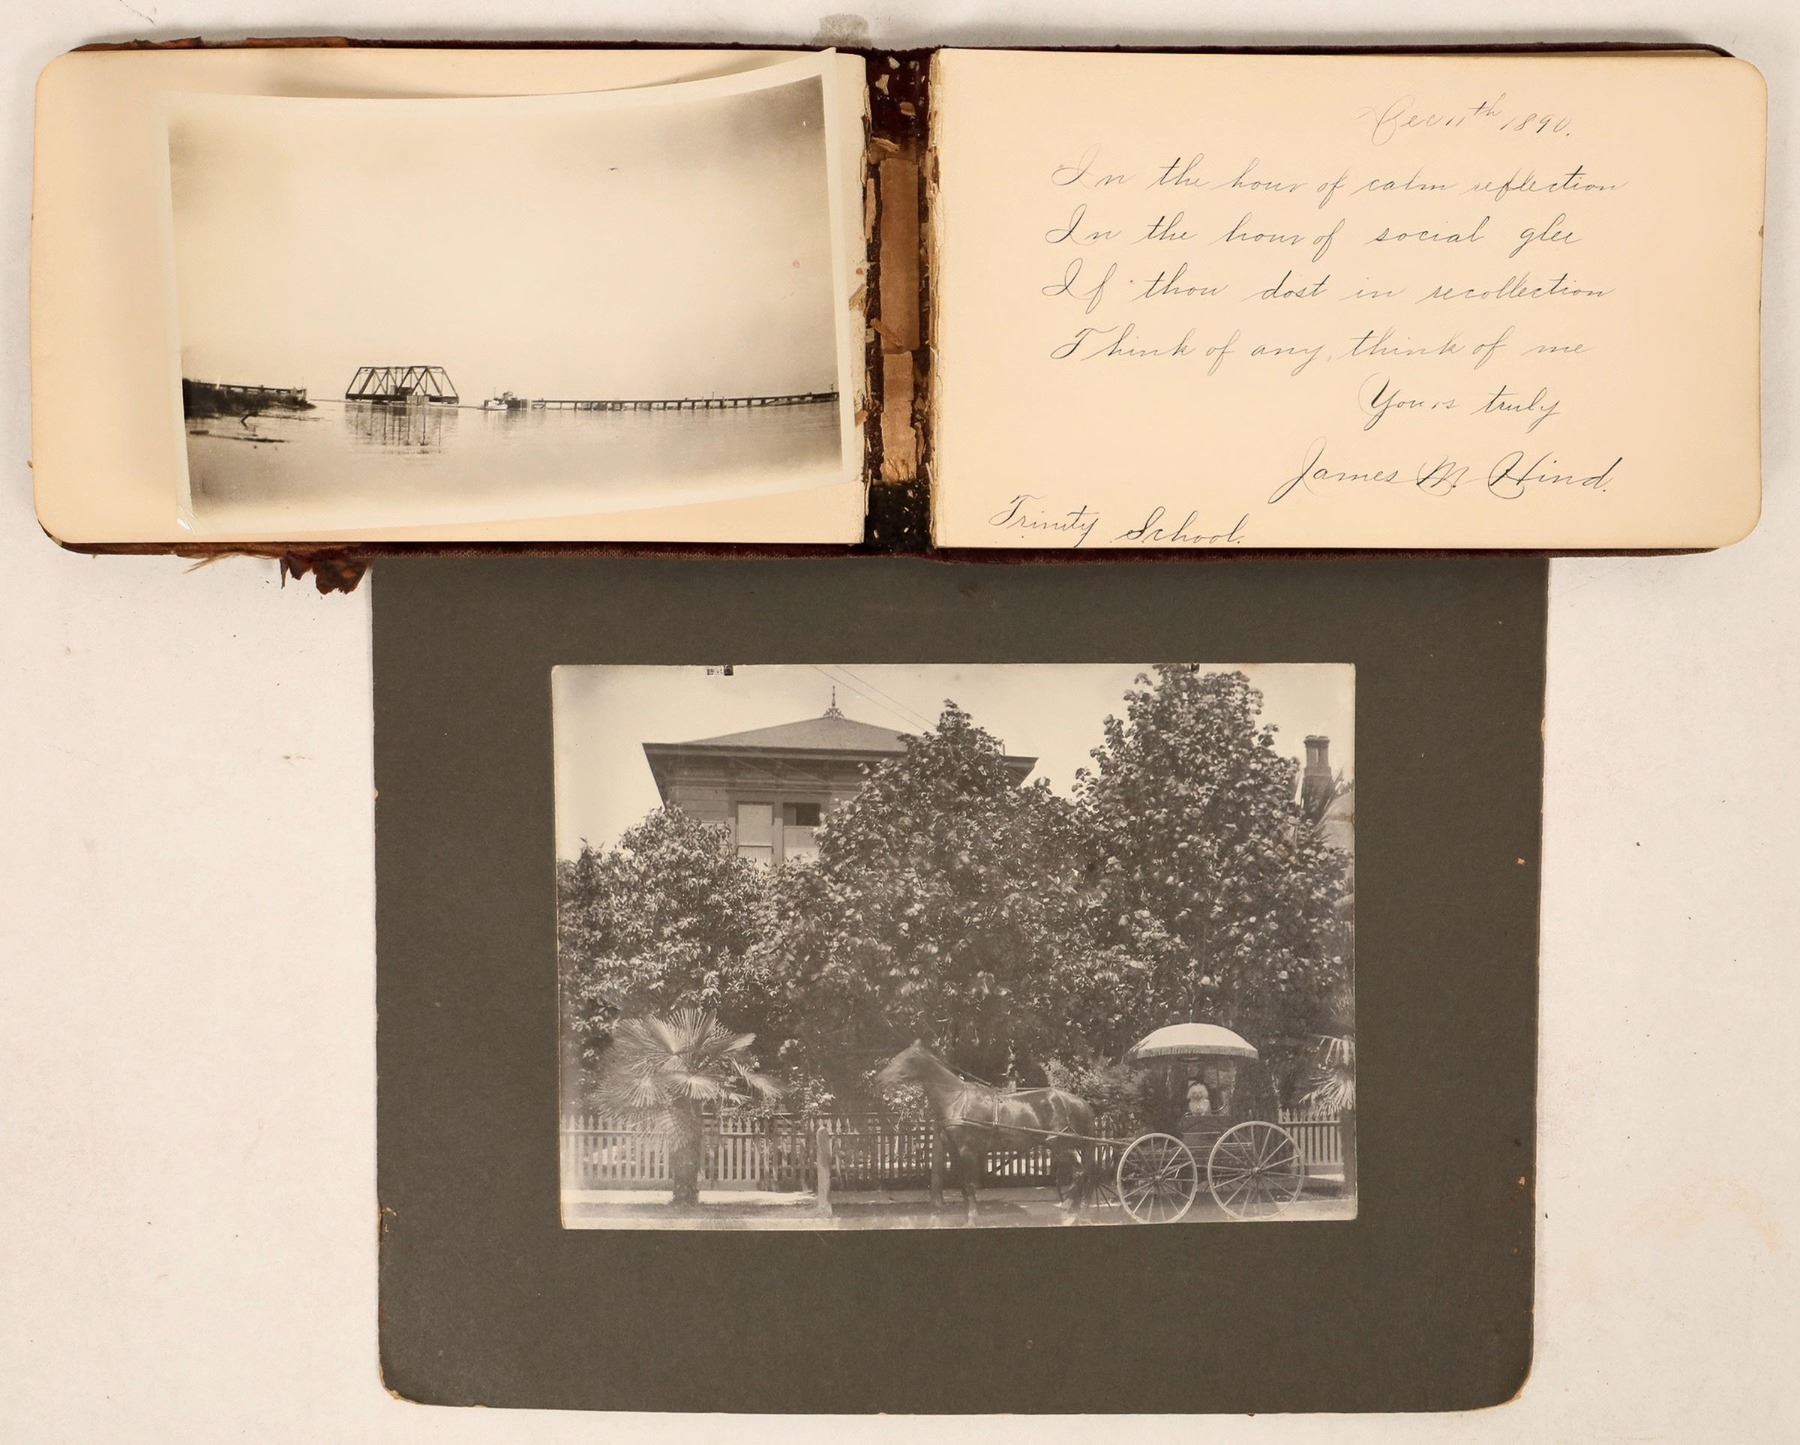 Dec 11th 1890.
In the hour of calm reflection
In the hour of social glee
If thou dost in recollection
Think of any, think of me
Yours truly
James M. Hind.
Trinity School.